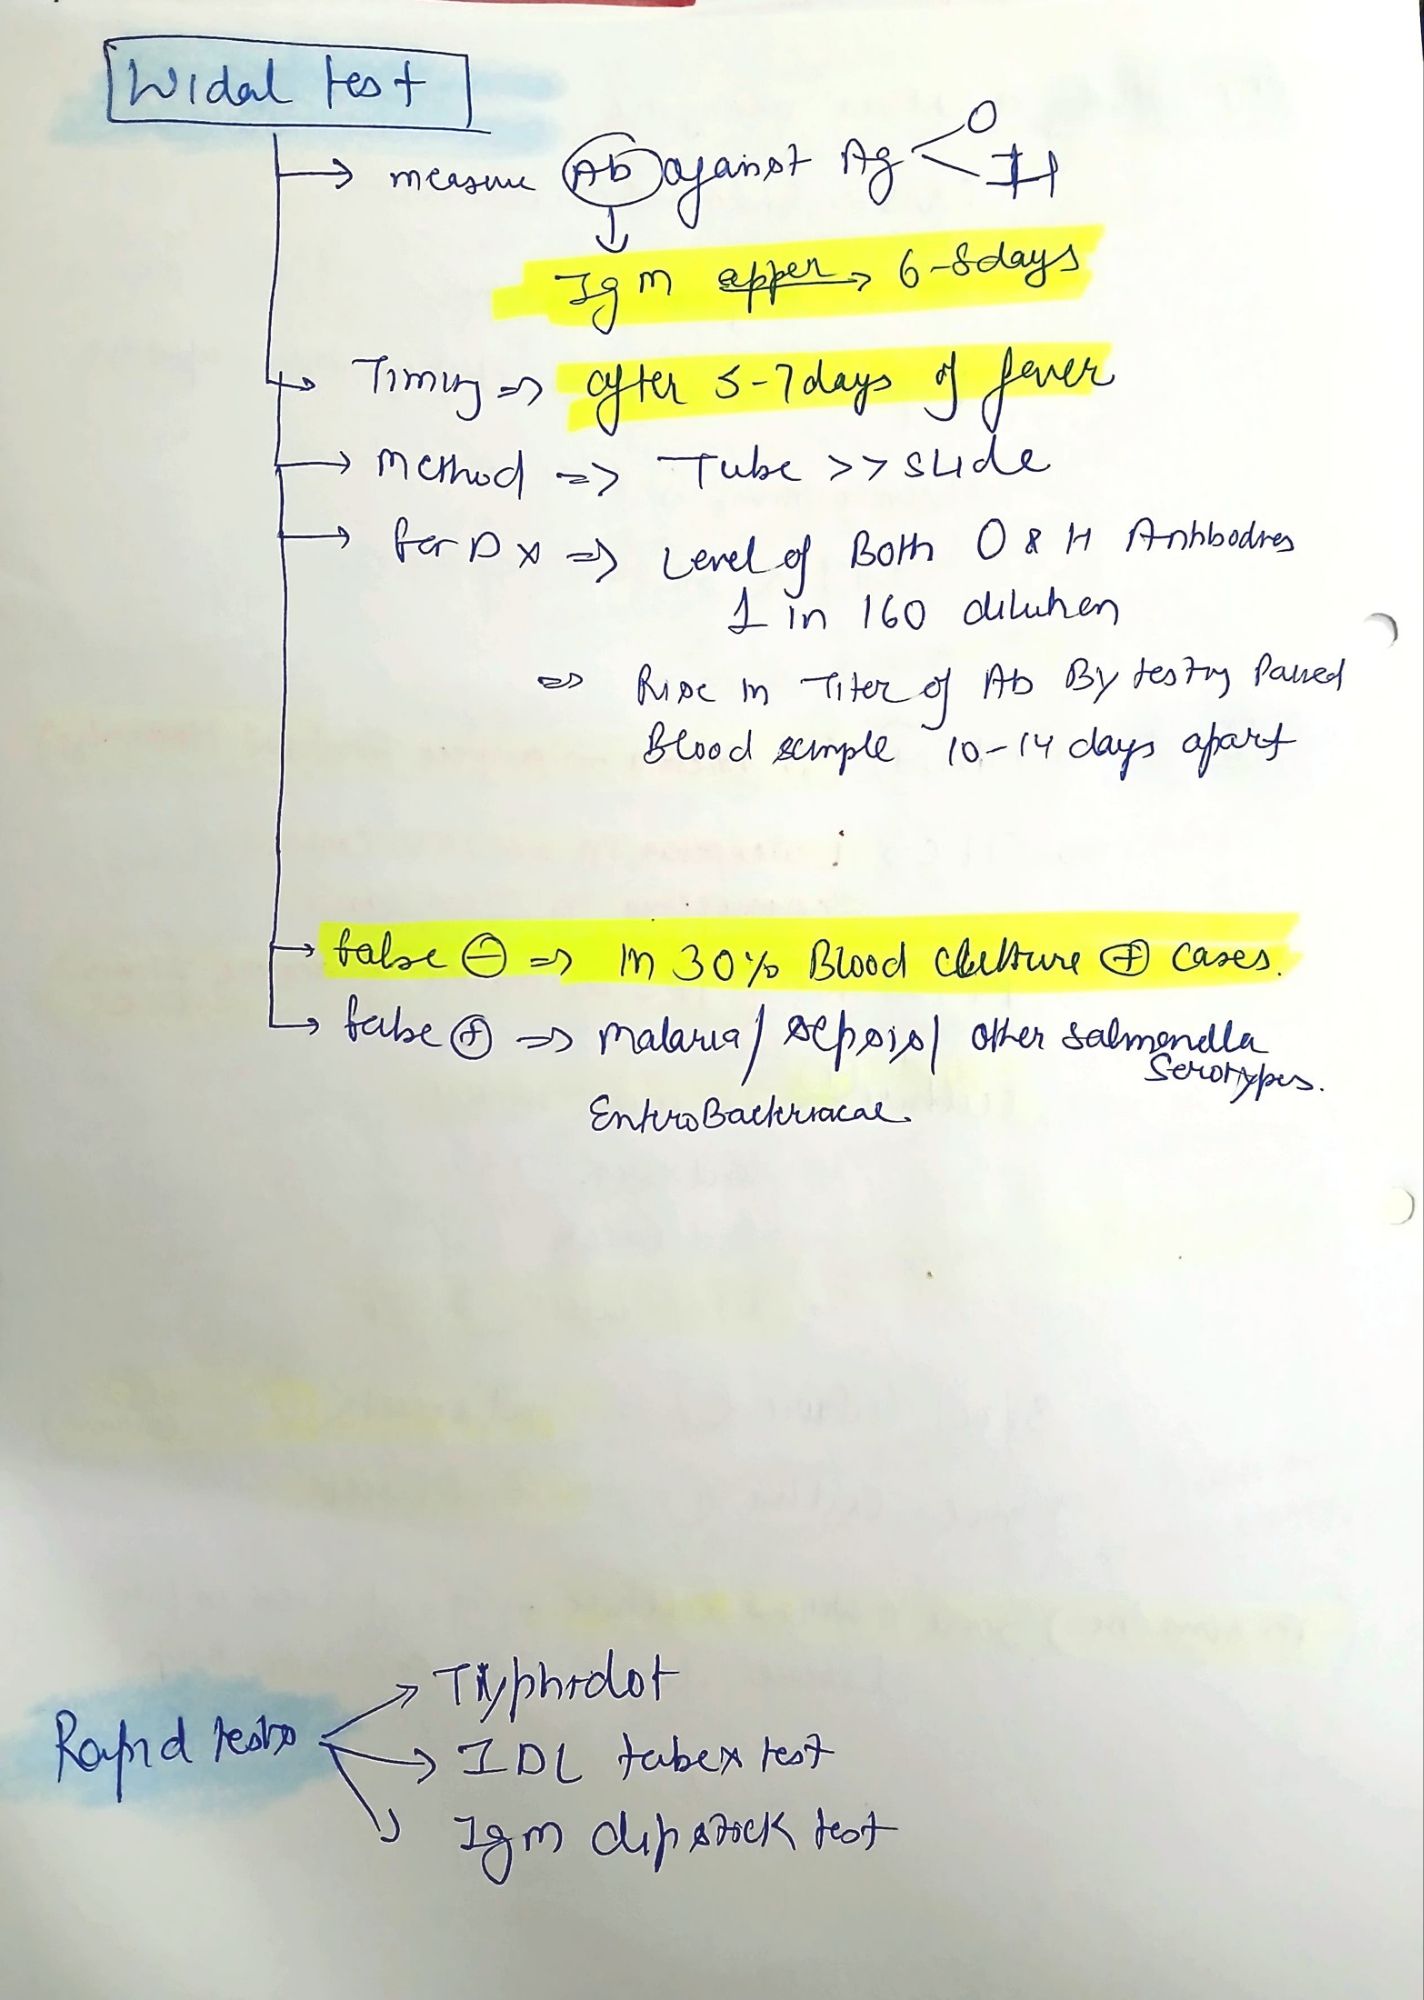 Widal test
→ measure Ab against Ag < O
H
↓
Igm apper → 6-8days
→ Timing => after 5-7days of fever
→ Method => Tube >> Slide
→ for Dx => Level of Both O & H Antibodies
1 in 160 dilution
=> Rise in Titer of Ab By testing Paired
Blood sample 10-14 days apart
→ false ⊖ => in 30% Blood culture ⊕ cases.
→ false ⊕ => Malaria/ sepsis/ other Salmonella
Serotypes.
EnteroBacteriacae
Rapid tests → Typhidot
→ IDL tubex test
→ Igm dipstick test